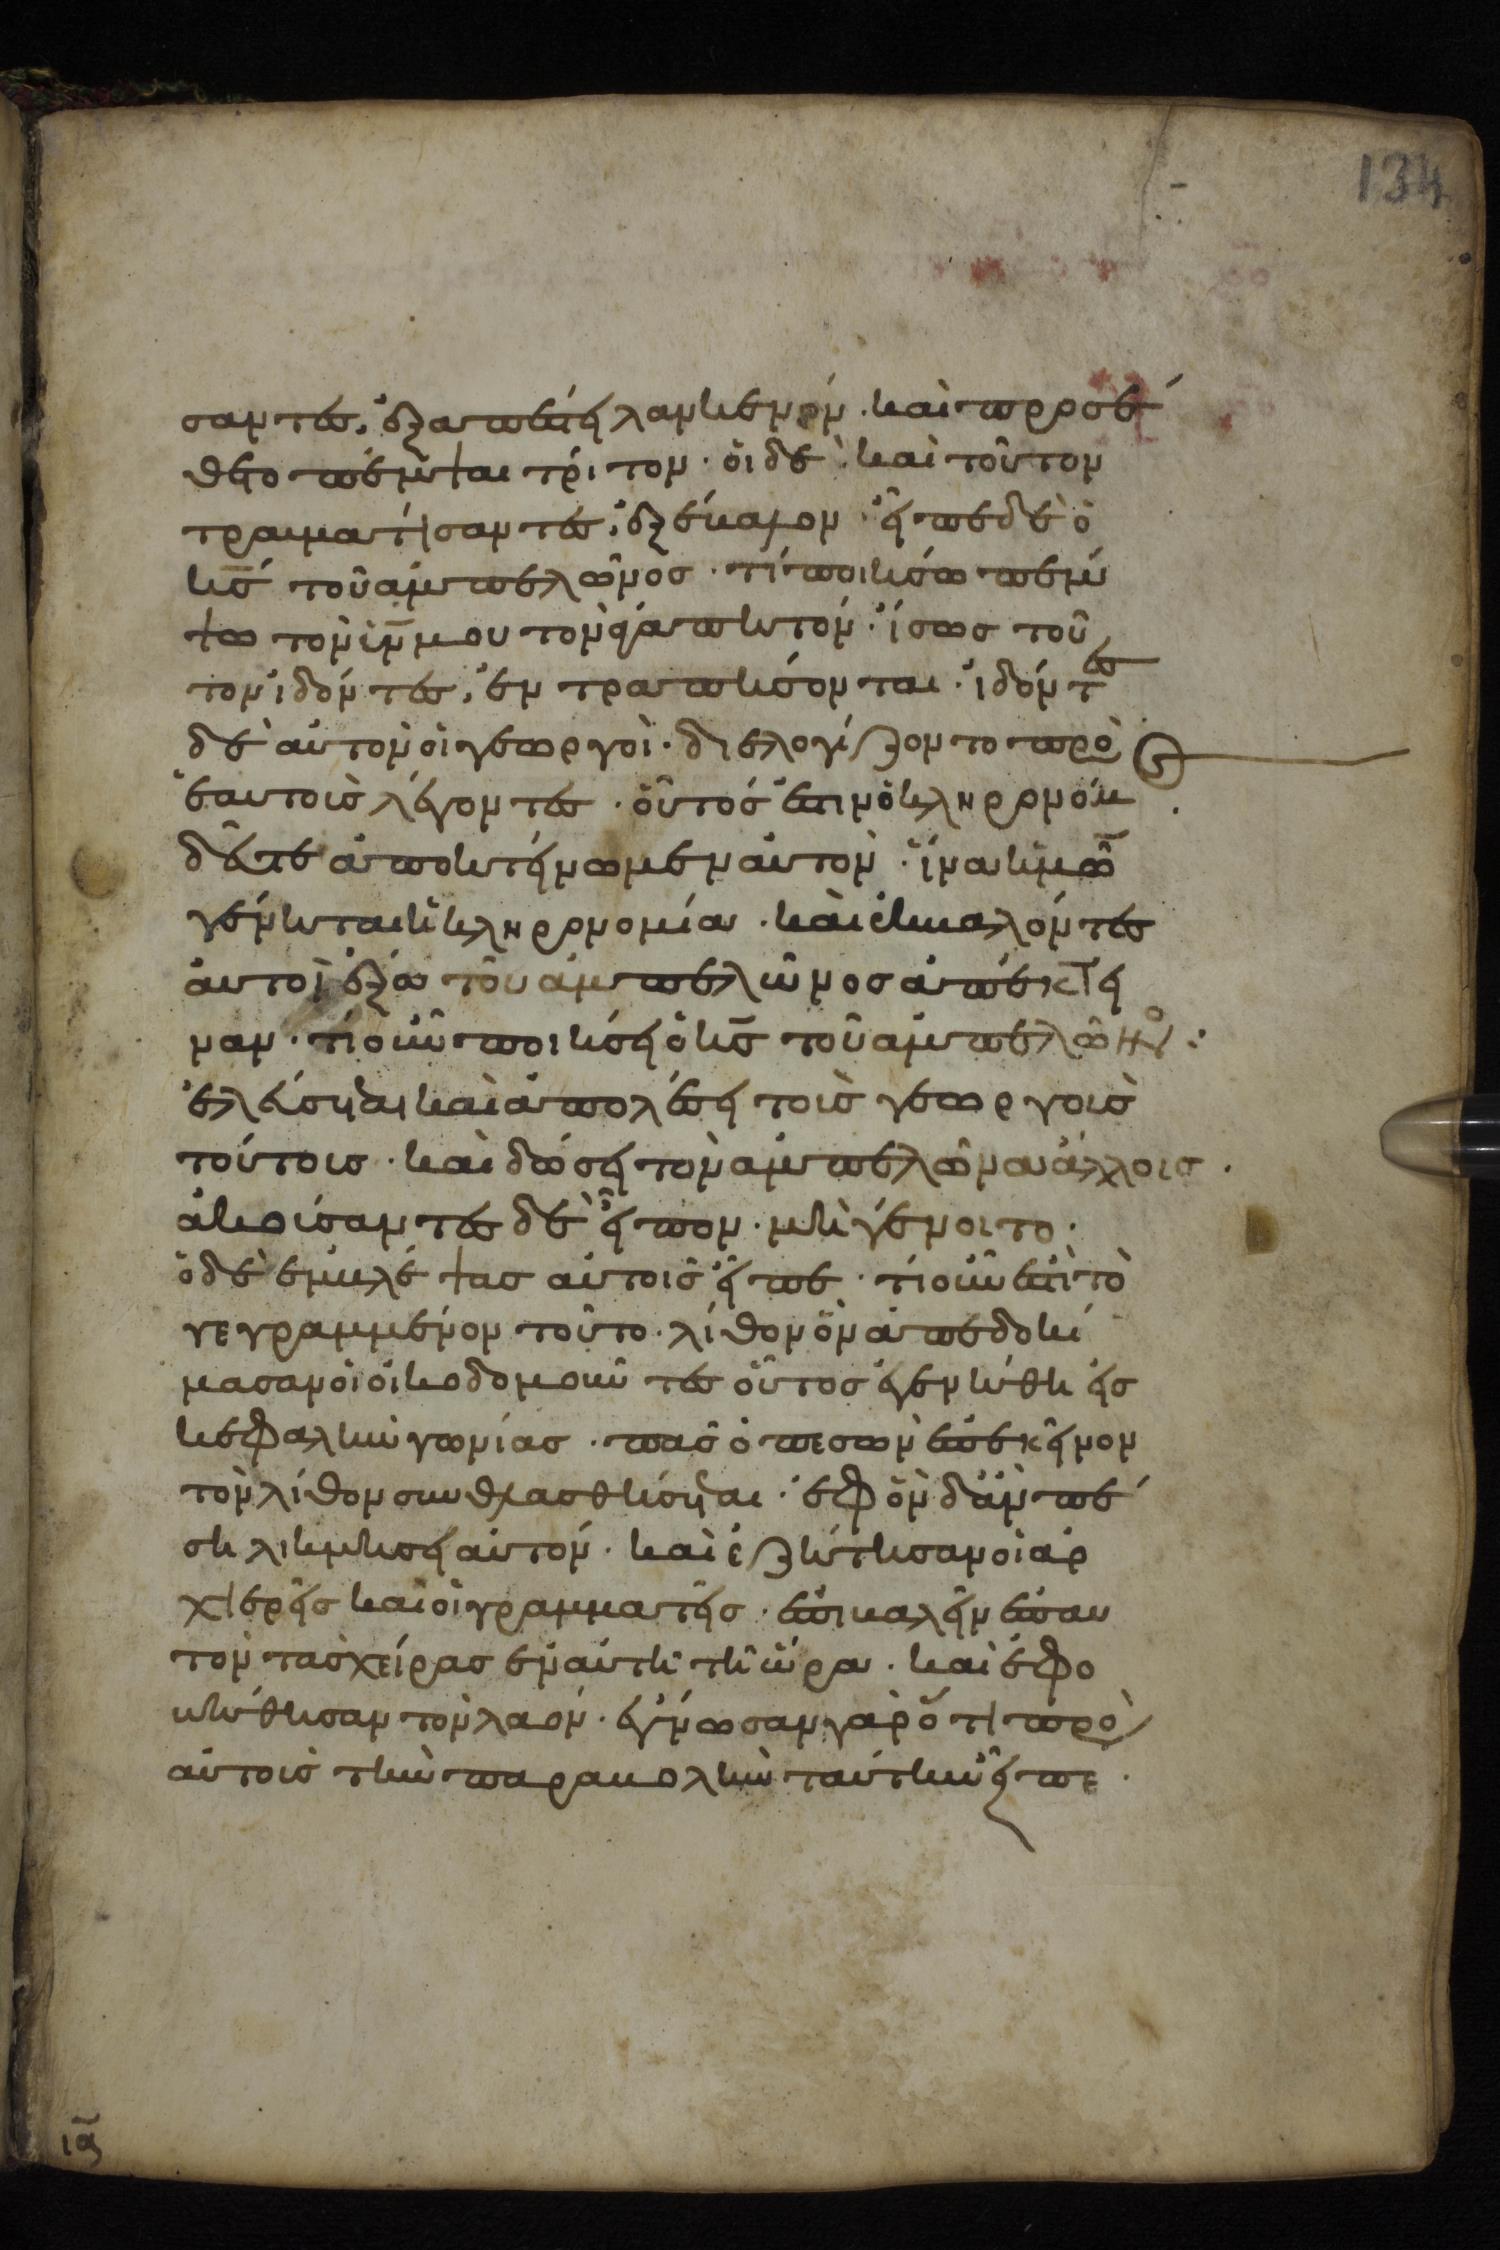 134
σαντες, ἐξαπέστειλαν κενόν. καὶ προσέ
θετο πέμψαι τρίτον. οἱ δὲ καὶ τοῦτον
τραυματίσαντες, ἐξέβαλον. εἶπε δὲ ὁ
κ̅ς̅ τοῦ ἀμπελῶνος. τί ποιήσω πέμ
ψω τὸν υ̅ν̅ μου τὸν ἀγαπητόν. ἴσως τοῦ
τον ἰδόντες, ἐντραπήσονται. ἰδόντες
δὲ αὐτὸν οἱ γεωργοὶ. διελογίζοντο πρὸς
ἑαυτοὺς λέγοντες. οὗτός ἐστιν ὁ κληρονόμος.
δεῦτε ἀποκτείνωμεν αὐτὸν. ἵνα ἡμῶν
γένηται ἡ κληρονομία. καὶ ἐκβαλόντες
αὐτὸν ἔξω τοῦ ἀμπελῶνος ἀπέκτει
ναν. τί οὖν ποιήσει ὁ κ̅ς̅ τοῦ ἀμπελῶνος:
ἐλεύσηται καὶ ἀπολέσει τοὺς γεωργοὺς
τούτους. καὶ δώσει τὸν ἀμπελῶνα ἄλλοις.
ἀκούσαντες δὲ εἶπον. μὴ γένοιτο.
ὁ δὲ ἐμβλέψας αὐτοῖς εἶπε. τί οὖν ἐστὶ τὸ
γεγραμμένον τοῦτο. λίθον ὃν ἀπεδοκί
μασαν οἱ οἰκοδομοῦντες οὗτος ἐγενήθη εἰς
κεφαλὴν γωνίας. πᾶς ὁ πεσὼν ἐπ' ἐκεῖνον
τὸν λίθον συνθλασθήσηται. ἐφ' ὃν δ' ἂν πέ
ση λικμήσει αὐτόν. καὶ ἐζήτησαν οἱ ἀρ
χιερεῖς καὶ οἱ γραμματεῖς. ἐπιβαλεῖν ἐπ' αὐ
τὸν τὰς χεῖρας ἐν αὐτῇ τῇ ὥρα. καὶ ἐφο
βήθησαν τὸν λαόν. ἔγνωσαν γὰρ ὅτι πρὸς
αὐτοὺς τὴν παραβολὴν ταύτην εἶπε.
ια